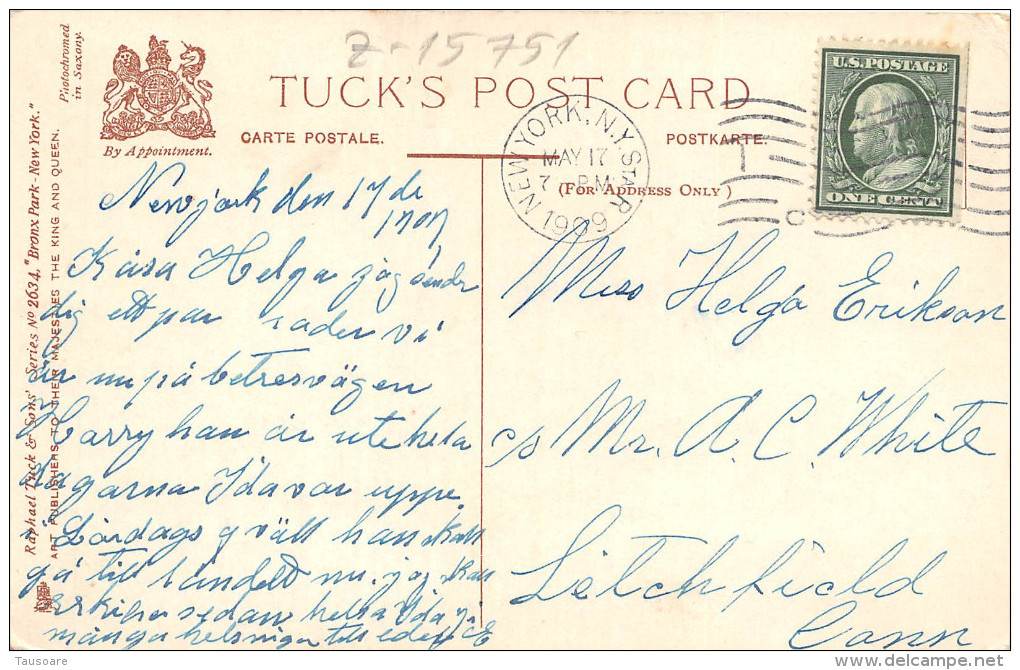 z-15751
Photochromed
in Saxony.
By Appointment.
TUCK'S POST CARD
CARTE POSTALE.
POSTKARTE.
(FOR ADDRESS ONLY)
NEW YORK, N.Y. STA. R
MAY 17
7 PM
1909
U.S. POSTAGE
ONE CENT
Raphael Tuck & Sons' Series No 2634, "Bronx Park - New York."
ART PUBLISHERS TO THEIR MAJESTIES THE KING AND QUEEN.
Newjork den 17 de
1909
Kära Helga jag sender
dig ett par rader vi
är nu på betresvägen
Harry han är ute hela
dagarna Ida var uppe
i Lördags qväll han skall
gå till landet nu. jag skall
skrifva sedan helsa Ida
många helsningar till eder
Miss Helga Erikson
c/o Mr. A. C. White
Litchfield
Conn
Tausoare
delcampe.net